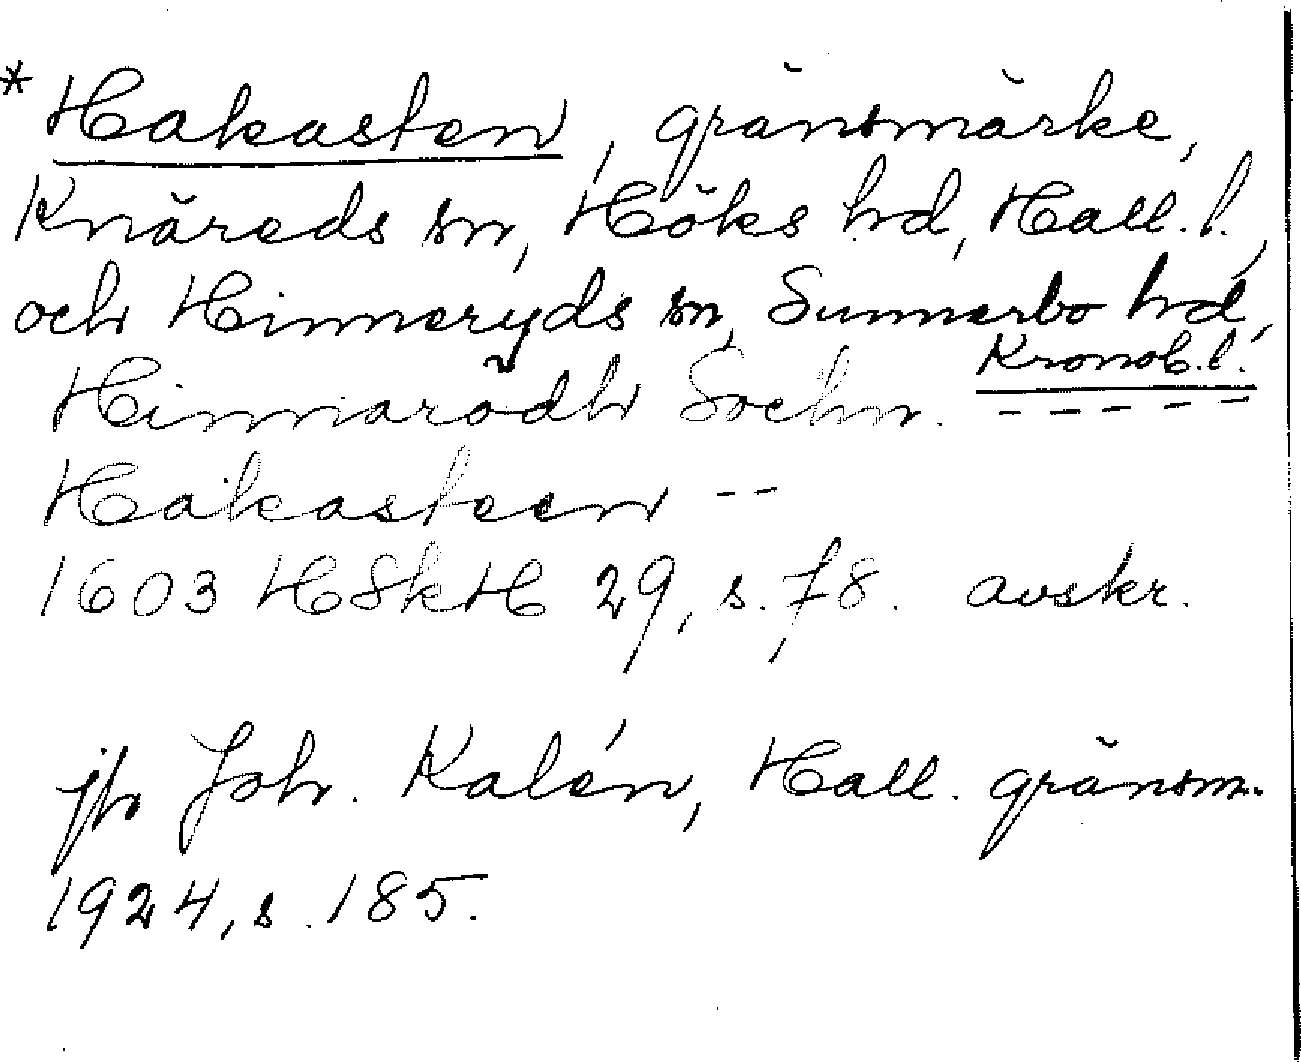 * Hakasten, gränsmärke,
Knäreds sn, Höks hd, Hall. l.,
och Hinneryds sn, Sunnerbo hd,
Kronob. l.
Hinnarödh Sochn. - - - - -
Hakasteen - -
1603 HSkH 29, s. 78. avskr.
jfr Joh. Kalén, Hall. gränsm.
1924, s. 185.